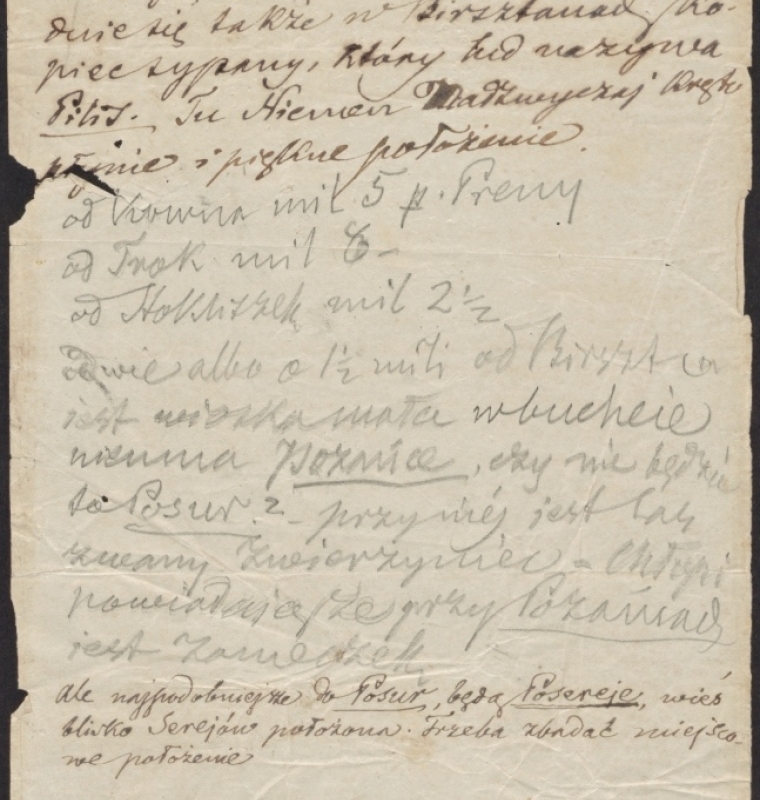 dnie się także w Birsztanach, ko-
piec sypany, który lud nazywa
Pilis. Tu Niemen nadzwyczaj kręto
płynie i piękne położenie.
od Kowna mil 5 p. Preny
od Trok mil 6 -
od Stokliszek mil 2 1/2
o dwie albo o 1 1/2 mili od Birszt
jest wioska mała w buchcie
niemna Pozańce, czy nie będzie
to Posur? - przy niéj jest las
zwany Zwierzyniec - Chłopi
powiadają że przy Pożańcach
jest zameczek
ale najpodobniejsze do Posur, będą Posereje, wieś
blisko Serejów położona. Trzeba zbadać miejsco-
we położenie